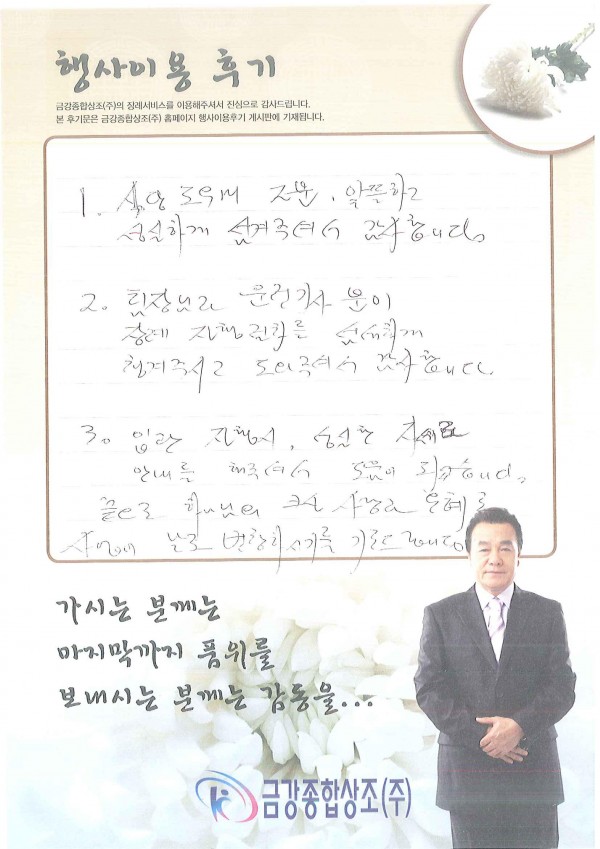 행사이용 후기
금강종합상조(주)의 장례서비스를 이용해주셔서 진심으로 감사드립니다.
본 후기문은 금강종합상조(주) 홈페이지 행사이용후기 게시판에 기재됩니다.
1. 도우미 조문, 알뜰하고
성실하게 섬겨주셔서 감사합니다.
2. 팀장님과 운전기사 분이
장례 진행절차를 섬세하게
챙겨주시고 도와주셔서 감사합니다.
3. 입관 진행시, 성실한 자세로
안내를 해주셔서 도움이 되었습니다.
끝으로 하나님의 크신 사랑과 은혜로
사업이 날로 번창하시기를 기도드립니다.
가시는 분께는
마지막까지 품위를
보내시는 분께는 감동을...
금강종합상조(주)